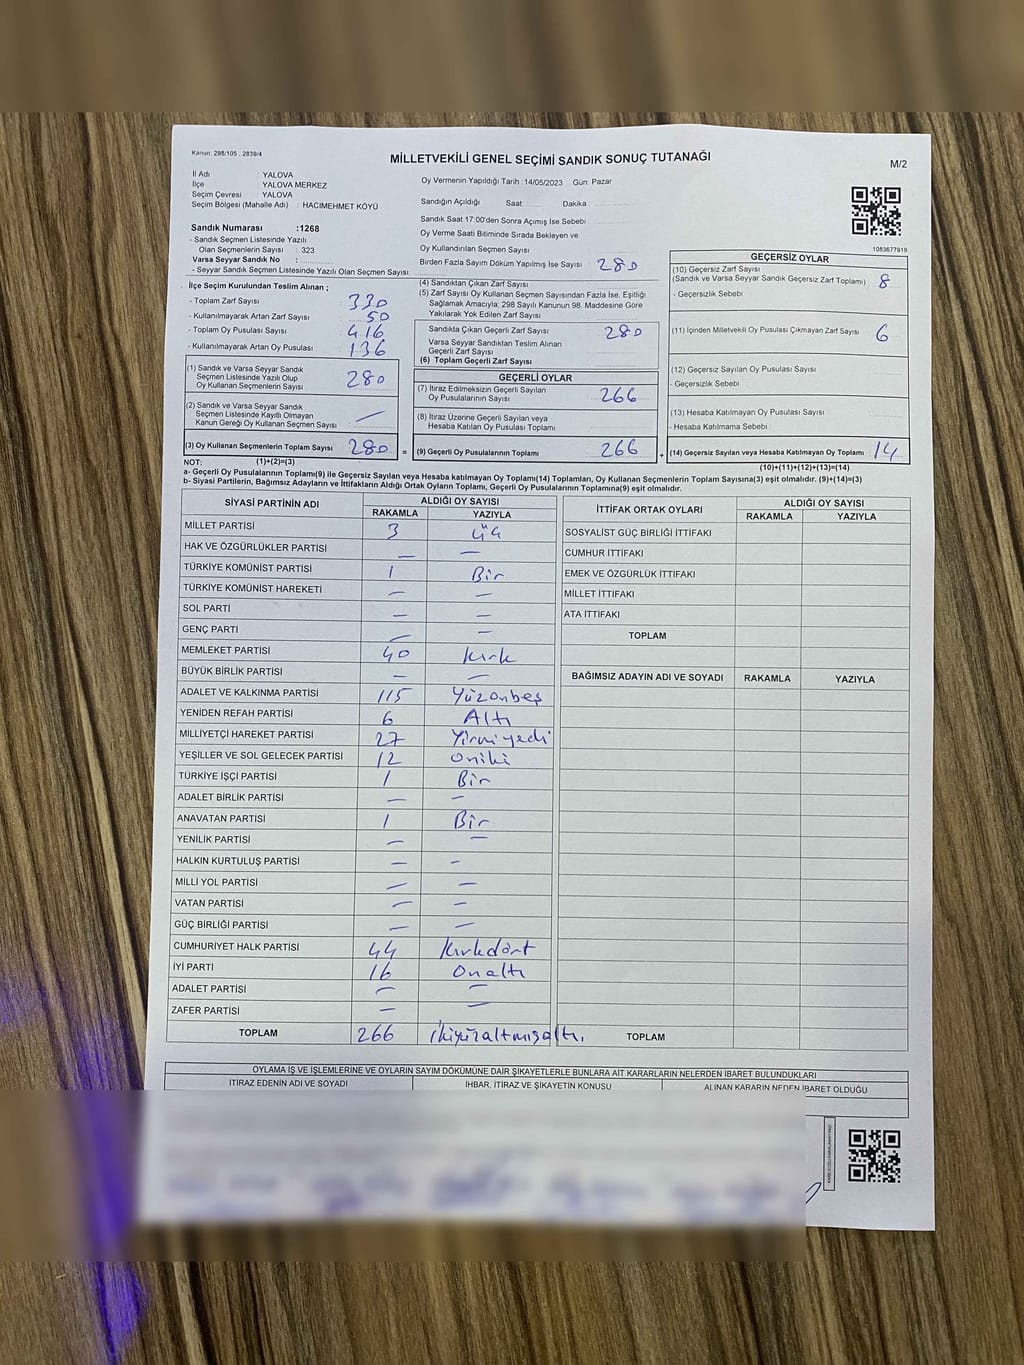 Kanun: 298/105 , 2839/4
MİLLETVEKİLİ GENEL SEÇİMİ SANDIK SONUÇ TUTANAĞI
M/2
İl Adı : YALOVA
İlçe : YALOVA MERKEZ
Seçim Çevresi : YALOVA
Seçim Bölgesi (Mahalle Adı) : HACIMEHMET KÖYÜ
Sandık Numarası :1268
- Sandık Seçmen Listesinde Yazılı
Olan Seçmenlerin Sayısı : 323
Varsa Seyyar Sandık No :
- Seyyar Sandık Seçmen Listesinde Yazılı Olan Seçmen Sayısı:
İlçe Seçim Kurulundan Teslim Alınan ;
- Toplam Zarf Sayısı 330
- Kullanılmayarak Artan Zarf Sayısı 50
- Toplam Oy Pusulası Sayısı 416
- Kullanılmayarak Artan Oy Pusulası 136
(1) Sandık ve Varsa Seyyar Sandık
Seçmen Listesinde Yazılı Olup
Oy Kullanan Seçmenlerin Sayısı 280
(2) Sandık ve Varsa Seyyar Sandık
Seçmen Listesinde Kayıtlı Olmayan
Kanun Gereği Oy Kullanan Seçmen Sayısı —
(3) Oy Kullanan Seçmenlerin Toplam Sayısı 280 =
(1)+(2)=(3)
Oy Vermenin Yapıldığı Tarih : 14/05/2023 Gün: Pazar
Sandığın Açıldığı Saat Dakika
Sandık Saat 17:00'den Sonra Açımış İse Sebebi :
Oy Verme Saati Bitiminde Sırada Bekleyen ve
Oy Kullandırılan Seçmen Sayısı
Birden Fazla Sayım Döküm Yapılmış İse Sayısı 280
(4) Sandıktan Çıkan Zarf Sayısı
(5) Zarf Sayısı Oy Kullanan Seçmen Sayısından Fazla İse, Eşitliği
Sağlamak Amacıyla; 298 Sayılı Kanunun 98. Maddesine Göre
Yakılarak Yok Edilen Zarf Sayısı
Sandıkta Çıkan Geçerli Zarf Sayısı 280
Varsa Seyyar Sandıktan Teslim Alınan
Geçerli Zarf Sayısı
(6) Toplam Geçerli Zarf Sayısı
GEÇERLİ OYLAR
(7) İtiraz Edilmeksizin Geçerli Sayılan
Oy Pusulalarının Sayısı 266
(8) İtiraz Üzerine Geçerli Sayılan veya
Hesaba Katılan Oy Pusulası Toplamı
(9) Geçerli Oy Pusulalarının Toplamı 266 +
1083677919
GEÇERSİZ OYLAR
(10) Geçersiz Zarf Sayısı
(Sandık ve Varsa Seyyar Sandık Geçersiz Zarf Toplamı) 8
- Geçersizlik Sebebi
(11) İçinden Milletvekili Oy Pusulası Çıkmayan Zarf Sayısı 6
(12) Geçersiz Sayılan Oy Pusulası Sayısı
- Geçersizlik Sebebi
(13) Hesaba Katılmayan Oy Pusulası Sayısı
- Hesaba Katılmama Sebebi
(14) Geçersiz Sayılan veya Hesaba Katılmayan Oy Toplamı 14
(10)+(11)+(12)+(13)=(14)
NOT:
a- Geçerli Oy Pusulalarının Toplamı(9) ile Geçersiz Sayılan veya Hesaba katılmayan Oy Toplamı(14) Toplamları, Oy Kullanan Seçmenlerin Toplam Sayısına(3) eşit olmalıdır. (9)+(14)=(3)
b- Siyasi Partilerin, Bağımsız Adayların ve İttifakların Aldığı Ortak Oyların Toplamı, Geçerli Oy Pusulalarının Toplamına(9) eşit olmalıdır.
SİYASİ PARTİNİN ADI ALDIĞI OY SAYISI
RAKAMLA YAZIYLA
MİLLET PARTİSİ 3 üç
HAK VE ÖZGÜRLÜKLER PARTİSİ — —
TÜRKİYE KOMÜNİST PARTİSİ 1 Bir
TÜRKİYE KOMÜNİST HAREKETİ — —
SOL PARTİ — —
GENÇ PARTİ — —
MEMLEKET PARTİSİ 40 Kırk
BÜYÜK BİRLİK PARTİSİ — —
ADALET VE KALKINMA PARTİSİ 115 Yüzonbeş
YENİDEN REFAH PARTİSİ 6 Altı
MİLLİYETÇİ HAREKET PARTİSİ 27 Yirmiyedi
YEŞİLLER VE SOL GELECEK PARTİSİ 12 oniki
TÜRKİYE İŞÇİ PARTİSİ 1 Bir
ADALET BİRLİK PARTİSİ — —
ANAVATAN PARTİSİ 1 Bir
YENİLİK PARTİSİ — —
HALKIN KURTULUŞ PARTİSİ — —
MİLLİ YOL PARTİSİ — —
VATAN PARTİSİ — —
GÜÇ BİRLİĞİ PARTİSİ — —
CUMHURİYET HALK PARTİSİ 44 Kırkdört
İYİ PARTİ 16 Onaltı
ADALET PARTİSİ — —
ZAFER PARTİSİ — —
TOPLAM 266 ikiyüzaltmışaltı.
İTTİFAK ORTAK OYLARI ALDIĞI OY SAYISI
RAKAMLA YAZIYLA
SOSYALİST GÜÇ BİRLİĞİ İTTİFAKI
CUMHUR İTTİFAKI
EMEK VE ÖZGÜRLÜK İTTİFAKI
MİLLET İTTİFAKI
ATA İTTİFAKI
TOPLAM
BAĞIMSIZ ADAYIN ADI VE SOYADI RAKAMLA YAZIYLA
TOPLAM
OYLAMA İŞ VE İŞLEMLERİNE VE OYLARIN SAYIM DÖKÜMÜNE DAİR ŞİKAYETLERLE BUNLARA AİT KARARLARIN NELERDEN İBARET BULUNDUKLARI
İTİRAZ EDENİN ADI VE SOYADI İHBAR, İTİRAZ VE ŞİKAYETİN KONUSU ALINAN KARARIN NEDEN İBARET OLDUĞU